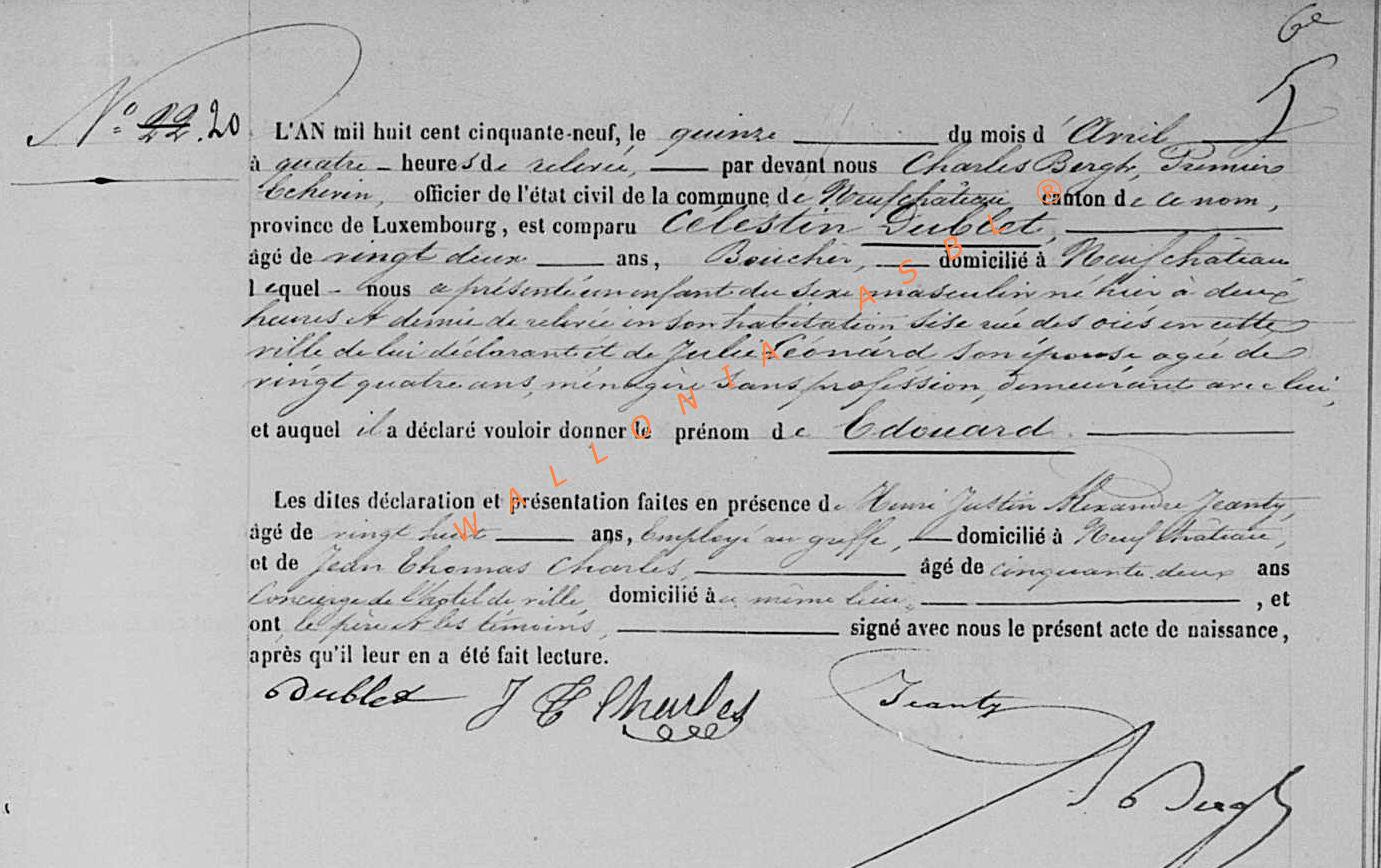 6e
5
N° 22. 20
L'AN mil huit cent cinquante-neuf, le quinze du mois d'Avril
à quatre heures de relevée, par devant nous Charles Bergh, Premier
Echevin, officier de l'état civil de la commune de Neufchâteau canton de ce nom,
province de Luxembourg, est comparu Célestin Dublet,
âgé de vingt deux ans, Boucher, domicilié à Neufchâteau
lequel nous a présenté un enfant du sexe masculin né hier à deux
heures et demie de relevée en son habitation sise rue des oies en cette
ville de lui déclarant et de Julie Léonard son épouse agée de
vingt quatre ans, ménagère sans profession, demeurant avec lui,
et auquel il a déclaré vouloir donner le prénom de Edouard.
Les dites déclaration et présentation faites en présence de Henri Justin Alexandre Jeanty,
âgé de vingt huit ans, Employé au greffe, domicilié à Neufchâteau,
et de Jean Thomas Charles, âgé de cinquante deux ans
Concierge de l'hotel de ville, domicilié au même lieu, , et
ont le père et les témoins, signé avec nous le présent acte de naissance,
après qu'il leur en a été fait lecture.
Dublet J T Charles Jeanty
Bergh
WALLONIA ASBL ®